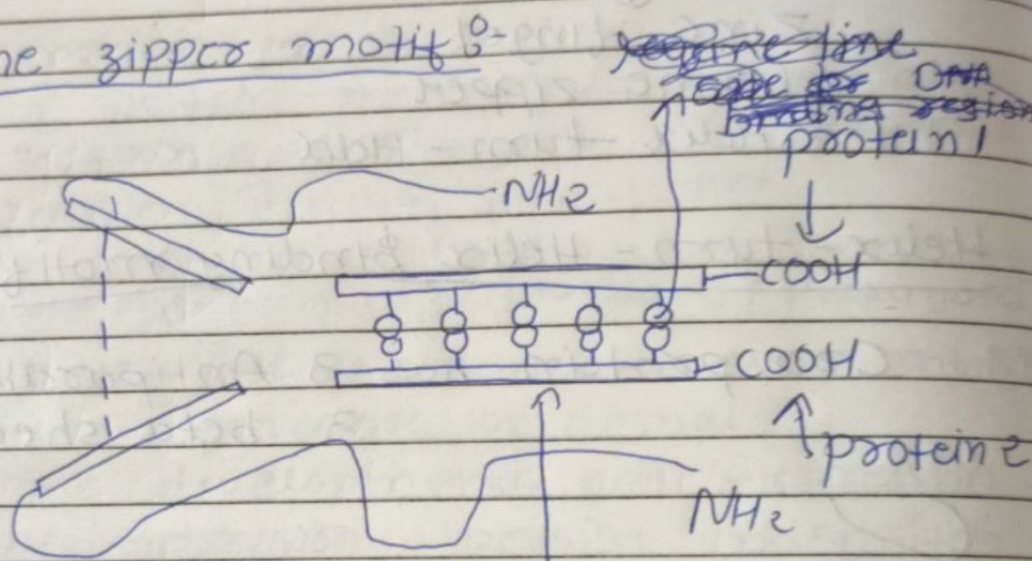 ne zipper motif :-
DNA
region
protein 1
NH2
COOH
COOH
protein 2
NH2